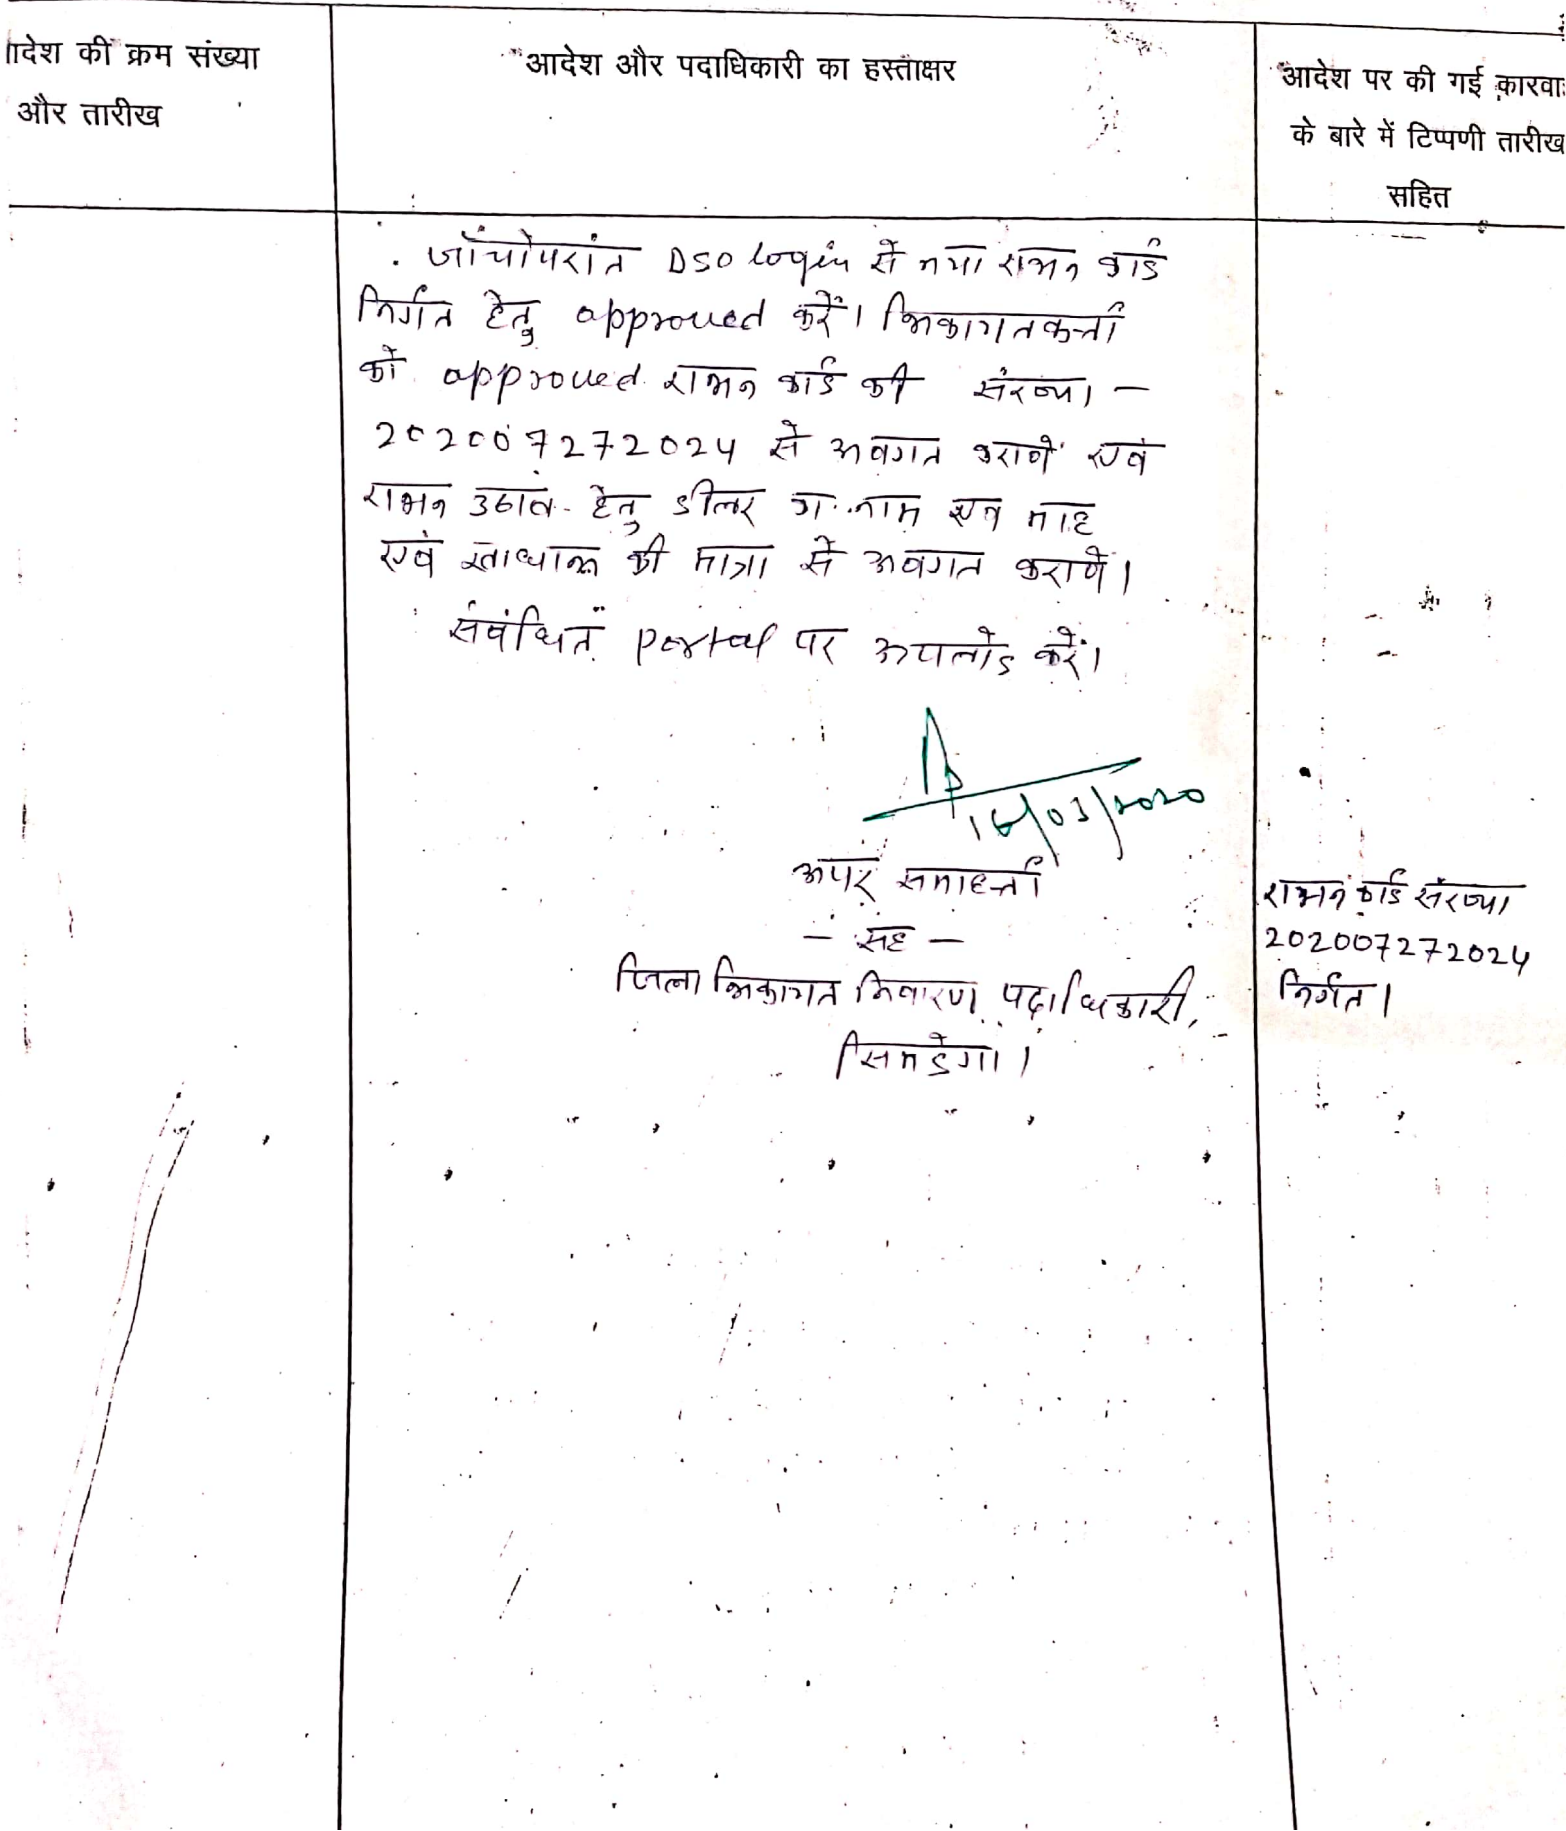 ादेश की क्रम संख्या
और तारीख
आदेश और पदाधिकारी का हस्ताक्षर
आदेश पर की गई कारवा
के बारे में टिप्पणी तारीख
सहित
जाँचोपरांत DSO login से नया राशन कार्ड
निर्गत हेतु approved करें। शिकायतकर्त्ता
को approved राशन कार्ड की संख्या -
202007272024 से अवगत करायें एवं
राशन उठाव हेतु डीलर का नाम एवं माह
एवं खाद्यान्न की मात्रा से अवगत करायें।
संबंधित portal पर अपलोड करें।
16/03/2020
अपर समाहर्त्ता
- सह -
जिला शिकायत निवारण पदाधिकारी,
सिमडेगा।
राशन कार्ड संख्या
202007272024
निर्गत।